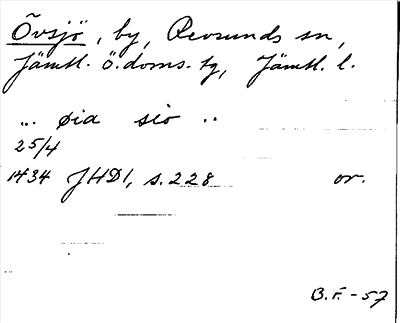 Övsjö, by, Revsunds sn,
Jämtl. ö. doms. tg, Jämtl. l.
... øia siö ..
25/4
1434 JHD1, s. 228 or.
B.F. - 57